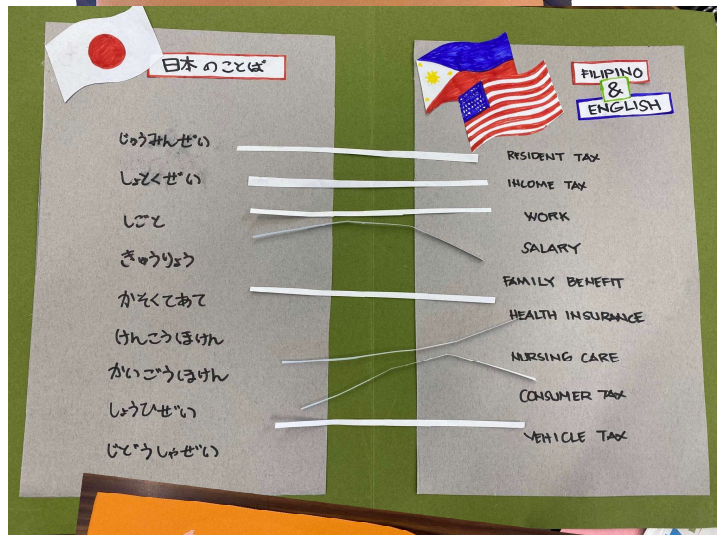 日本のことば
じゅうみんぜい
しょとくぜい
しごと
きゅうりょう
かぞくてあて
けんこうほけん
かいごうほけん
しょうひぜい
じどうしゃぜい
FILIPINO
&
ENGLISH
RESIDENT TAX
INCOME TAX
WORK
SALARY
FAMILY BENEFIT
HEALTH INSURANCE
NURSING CARE
CONSUMER TAX
VEHICLE TAX